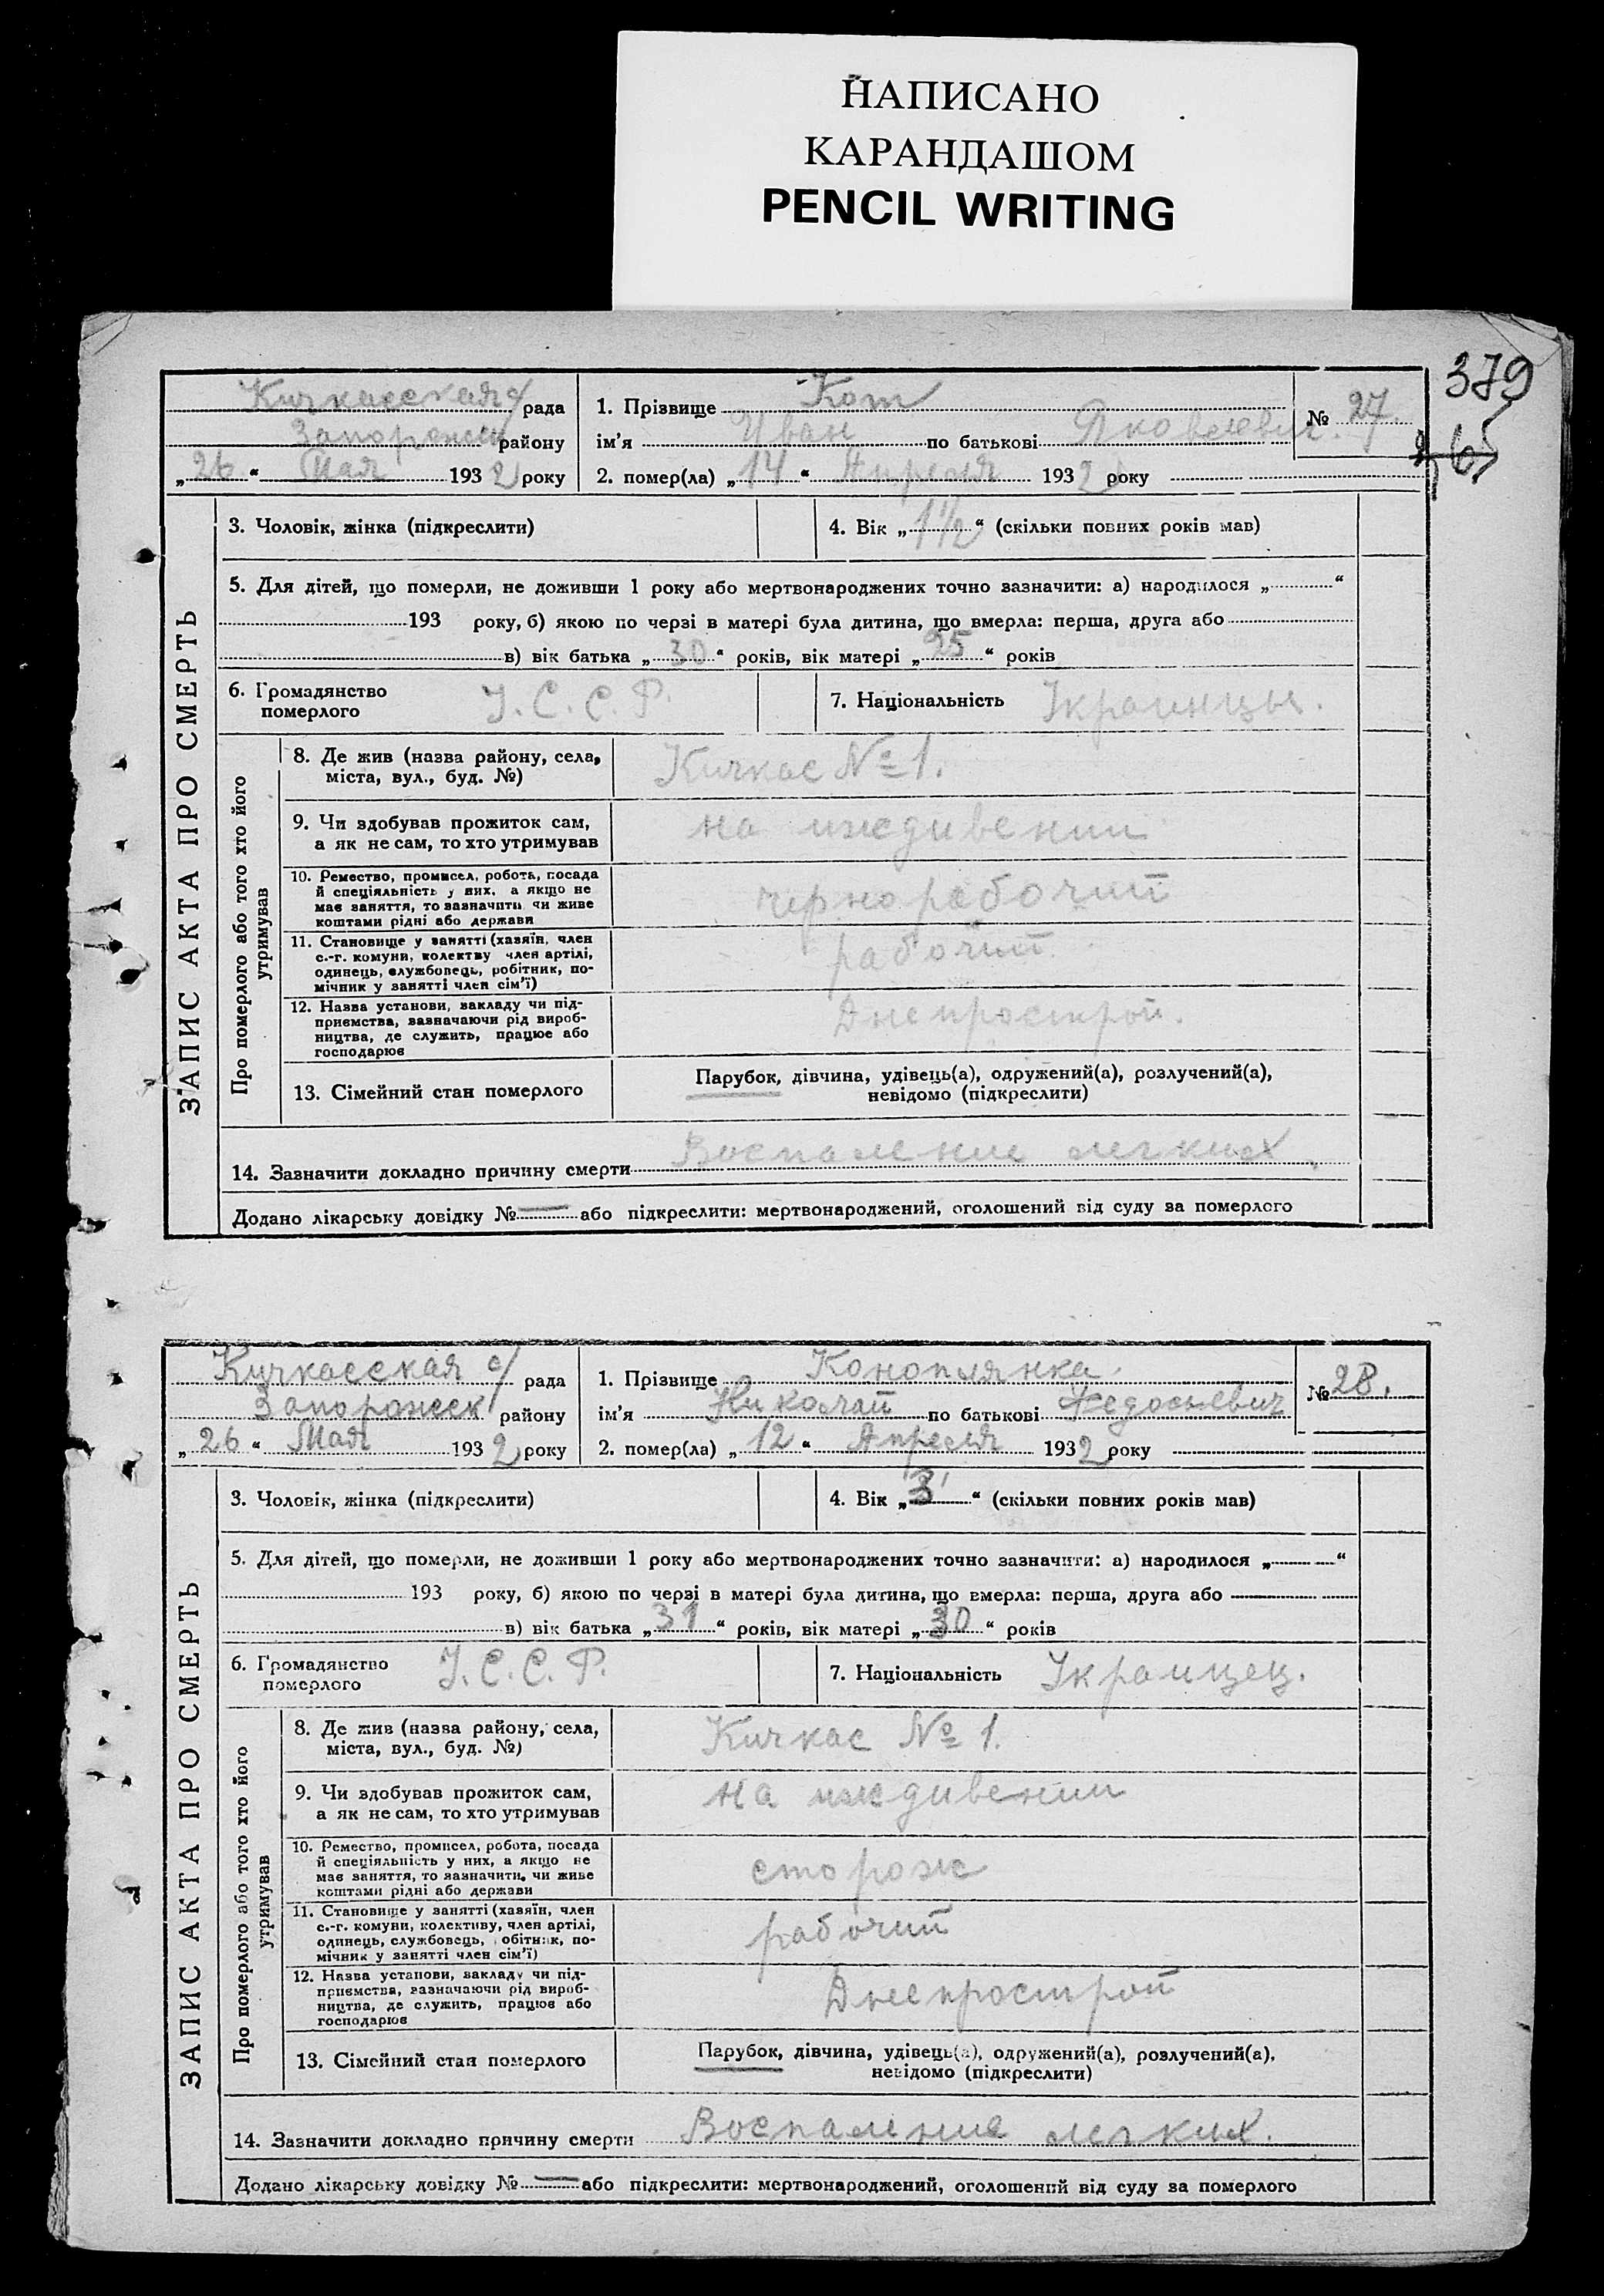 НАПИСАНО
КАРАНДАШОМ
PENCIL WRITING
379
265
Кичкасская с/ рада
Запорожск району
„26“ Мая 1932 року
1. Прізвище Кот
ім’я Иван по батькові Яковлевич.
№ 27.
2. помер(ла) „14“ Апреля 1932 року
ЗАПИС АКТА ПРО СМЕРТЬ
3. Чоловік, жінка (підкреслити)
4. Вік „1 1/2“ (скільки повних років мав)
5. Для дітей, що померли, не доживши 1 року або мертвонароджених точно зазначити: а) народилося „ “
193 року, б) якою по черзі в матері була дитина, що вмерла: перша, друга або
в) вік батька „30“ років, вік матері „25“ років
6. Громадянство
померлого
У.С.С.Р.
7. Національність Украинцы.
Про померлого або того хто його
утримував
8. Де жив (назва району, села,
міста, вул., буд. №)
Кичкас № 1.
9. Чи здобував прожиток сам,
а як не сам, то хто утримував
на иждивении
10. Ремество, промисел, робота, посада
й спеціяльність у них, а якщо не
має заняття, то зазначити чи живе
коштами рідні або держави
чернорабочий
11. Становище у занятті (хазяїн, член
с.-г. комуни, колектву член артілі,
одинець, службовець, робітник, по-
мічник у занятті член сім’ї)
рабочий
12. Назва установи, закладу чи під-
приємства, зазначаючи рід вироб-
ництва, де служить, працює або
господарює
Днепрострой.
13. Сімейний стан померлого
Парубок, дівчина, удівець(а), одружений(а), розлучений(а),
невідомо (підкреслити)
14. Зазначити докладно причину смерти Воспаление легких.
Додано лікарську довідку № — або підкреслити: мертвонароджений, оголошений від суду за померлого
Кичкасская с/ рада
Запорожск району
„26“ Мая 1932 року
1. Прізвище Коноплянка.
ім’я Николай по батькові Федосьевич
№ 28.
2. помер(ла) „12“ Апреля 1932 року
ЗАПИС АКТА ПРО СМЕРТЬ
3. Чоловік, жінка (підкреслити)
4. Вік „3“ (скільки повних років мав)
5. Для дітей, що померли, не доживши 1 року або мертвонароджених точно зазначити: а) народилося „ “
193 року, б) якою по черзі в матері була дитина, що вмерла: перша, друга або
в) вік батька „31“ років, вік матері „30“ років
6. Громадянство
померлого
У.С.С.Р.
7. Національність Украинец.
Про померлого або того хто його
утримував
8. Де жив (назва району, села,
міста, вул., буд. №)
Кичкас № 1.
9. Чи здобував прожиток сам,
а як не сам, то хто утримував
на иждивении
10. Ремество, промисел, робота, посада
й спеціяльність у них, а якщо не
має заняття, то зазначити, чи живе
коштами рідні або держави
сторож
11. Становище у занятті (хазяїн, член
с.-г. комуни, колективу, член артілі,
одинець, службовець, обітник, по-
мічник у занятті член сім’ї)
рабочий
12. Назва установи, закладу чи під-
приємства, зазначаючи рід вироб-
ництва, де служить, працює або
господарює
Днепрострой
13. Сімейний стан померлого
Парубок, дівчина, удівець(а), одружений(а), розлучений(а),
невідомо (підкреслити)
14. Зазначити докладно причину смерти Воспаления легких.
Додано лікарську довідку № — або підкреслити: мертвонароджений, оголошений від суду за померлого